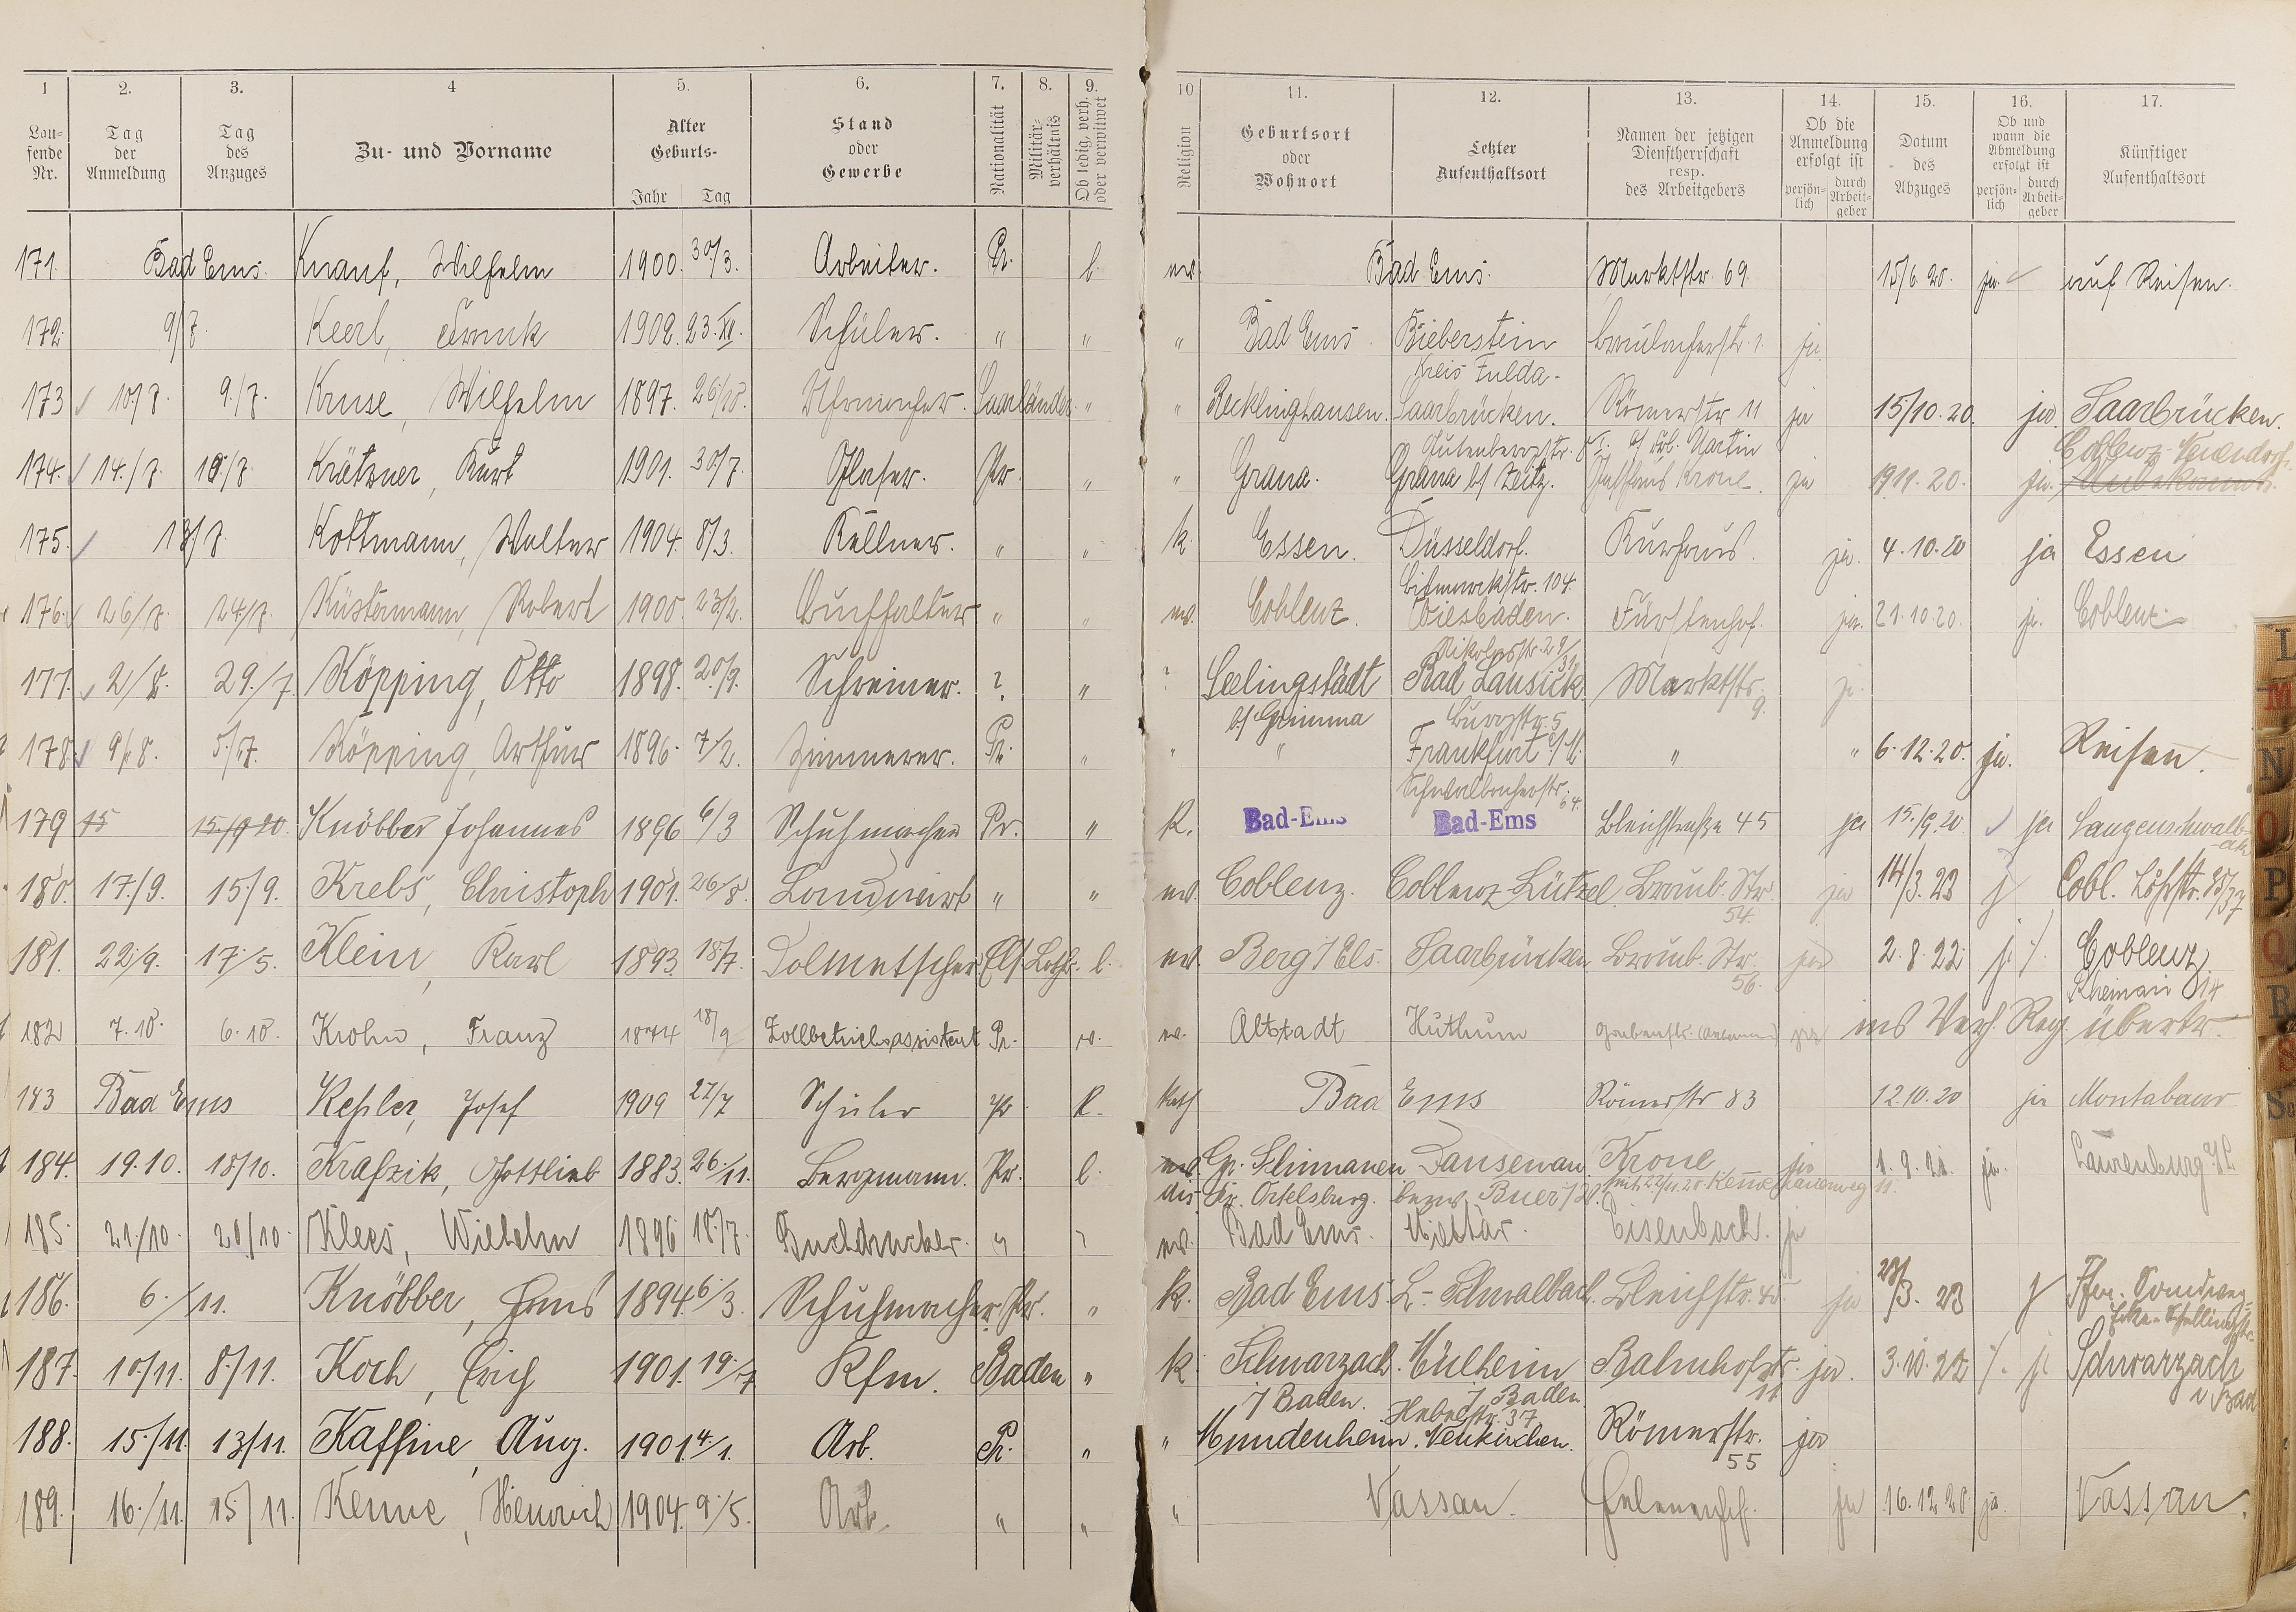 1 2. 3. 4 5. 6. 7. 8. 9. 10 11. 12. 13. 14. 15. 16. 17.
Lau-
fende
Nr.
Tag
der
Anmeldung
Tag
des
Anzuges
Zu- und Vorname
Alter
Geburts-
Jahr Tag
Stand
oder
Gewerbe
Nationalität
Militär-
verhältnis
Ob ledig, verh.
oder verwitwet
Religion
Geburtsort
oder
Wohnort
Letzter
Aufenthaltsort
Namen der jetzigen
Dienstherrschaft
resp.
des Arbeitgebers
Ob die
Anmeldung
erfolgt ist
persön-
lich
durch
Arbeit-
geber
Datum
des
Abzuges
Ob und
wann die
Abmeldung
erfolgt ist
persön-
lich
durch
Arbeit-
geber
Künftiger
Aufenthaltsort
171. Bad Ems. Knauf, Wilhelm 1900. 30/3. Arbeiter. Pr. l. ev. Bad Ems. Marktstr. 69. 15/6.20. ja. auf Reisen.
172. 9/7. Keerl, Frank 1902. 23.XI. Schüler. " " " Bad Ems. Bieberstein Braubacherstr. 1. ja.
Kreis Fulda-
173 10/7. 9./7. Kruse, Wilhelm 1897. 26/10. Uhrmacher. Saarländer. " " Recklinghausen. Saarbrücken. Römerstr 11 ja 15/10.20. ja. Saarbrücken.
Gutenbergstr. b/ Frl. Martin Coblenz-Neuendorf.
174. 14./7 10/7. Krätzner, Kurt 1901. 30/7. Glaser. Pr. " " Grana. Grana b/ Zeitz. Gasthaus Krone. ja 19 11.20. ja. Unbekannt.
175. 13/7. Kottmann, Walter 1904. 8/3. Kellner. " " k. Essen. Düsseldorf. Kurhaus. ja. 4.10.20 ja Essen
Bismarckstr. 104.
176. 26/7. 24./7. Küstermann, Robert 1900. 23/2. Buchhalter " " ev. Coblenz. Wiesbaden. Fürstenhof. ja. 21.10.20. ja. Coblenz
Nikolasstr. 29/31
177. 2/8. 29./7. Köpping, Otto 1898. 20/9. Schreiner. ? " ? Seelingstädt Bad Lausick Marktstr. 9. ja.
b/ Grimma Burgstr. 5
178. 9/8. 5./7. Köpping, Arthur 1896. 7/2. Zimmerer. Pr. " " " Frankfurt a/M. " " 6.12.20. ja. Reisen.
Schwalbacherstr. 64.
179 15 15./9 20. Knöbber Johannes 1896 6/3 Schuhmacher Pr. " K. Bad-Ems Bad-Ems Bleichstraße 45 ja 15./9.20 ja Langenschwalb-
ach
180. 17./9. 15/9. Krebs, Christoph 1901. 26/8. Landwirt " " ev. Coblenz. Coblenz-Lützel. Braub. Str. 54. ja 14/3.23 j Cobl. Löhrstr. 35/37
181. 22./9. 17/5. Klein, Karl 1893. 18/7. Dolmetscher Els. Lothr. l. ev. Berg i/Els. Saarbrücken Braub. Str. 56. ja 2.8.22. j. /. Coblenz.
Rheinau 14
182 7.10. 6.10. Krohn, Franz 1874 18/9 Zollbetriebsassistent Pr. v. ev. Altstadt Huthum Grabenstr. ja ins Verh. Reg. übertr.
183 Bad Ems Kehler, Josef 1909 27/7 Schüler Pr. k. Kath Bad Ems Römerstr 83 12.10.20 ja Montabaur
184. 19.10. 18/10. Krafzik, Gottlieb 1883. 26./11. Bergmann. Pr. l. ev. Gr. Schimanen Dausenau. Krone ja 1.9.21. ja. Laurenburg a/L
dis. Kr. Ortelsburg. bezw. Buer i/W. seit 22/11.20 11.
185. 21./10. 20/10. Klees, Wilhelm 1896 18./7. Buchdrucker. " " ev. Bad Ems. Militär. Eisenbach. ja
186. 6./11. Knöbber, Hans 1894. 6/3. Schuhmacher Pr. " k. Bad Ems. L.-Schwalbach. Bleichstr. 45. ja 28/3. 23 j
187. 10./11. 8./11. Koch, Erich 1901. 19./7 Kfm. Baden " k. Schwarzach. Mülheim Bahnhofstr. 11. ja. 3.10.22. /. j. Schwarzach
i/Baden. i/ Baden. i/Bad
Hebelstr. 37
188. 15./11. 13/11. Kaffine, Aug. 1901. 4/1. Arb. Pr. " " Mundenheim. Neukirchen. Römerstr. 55 ja
189. 16./11. 15/11. Kenne, Heinrich 1904. 9./5. Arb. " " " Nassau. Helenenhof. ja 16.12.20. ja. Nassau.
L
M
N
O
P
Q
R
S